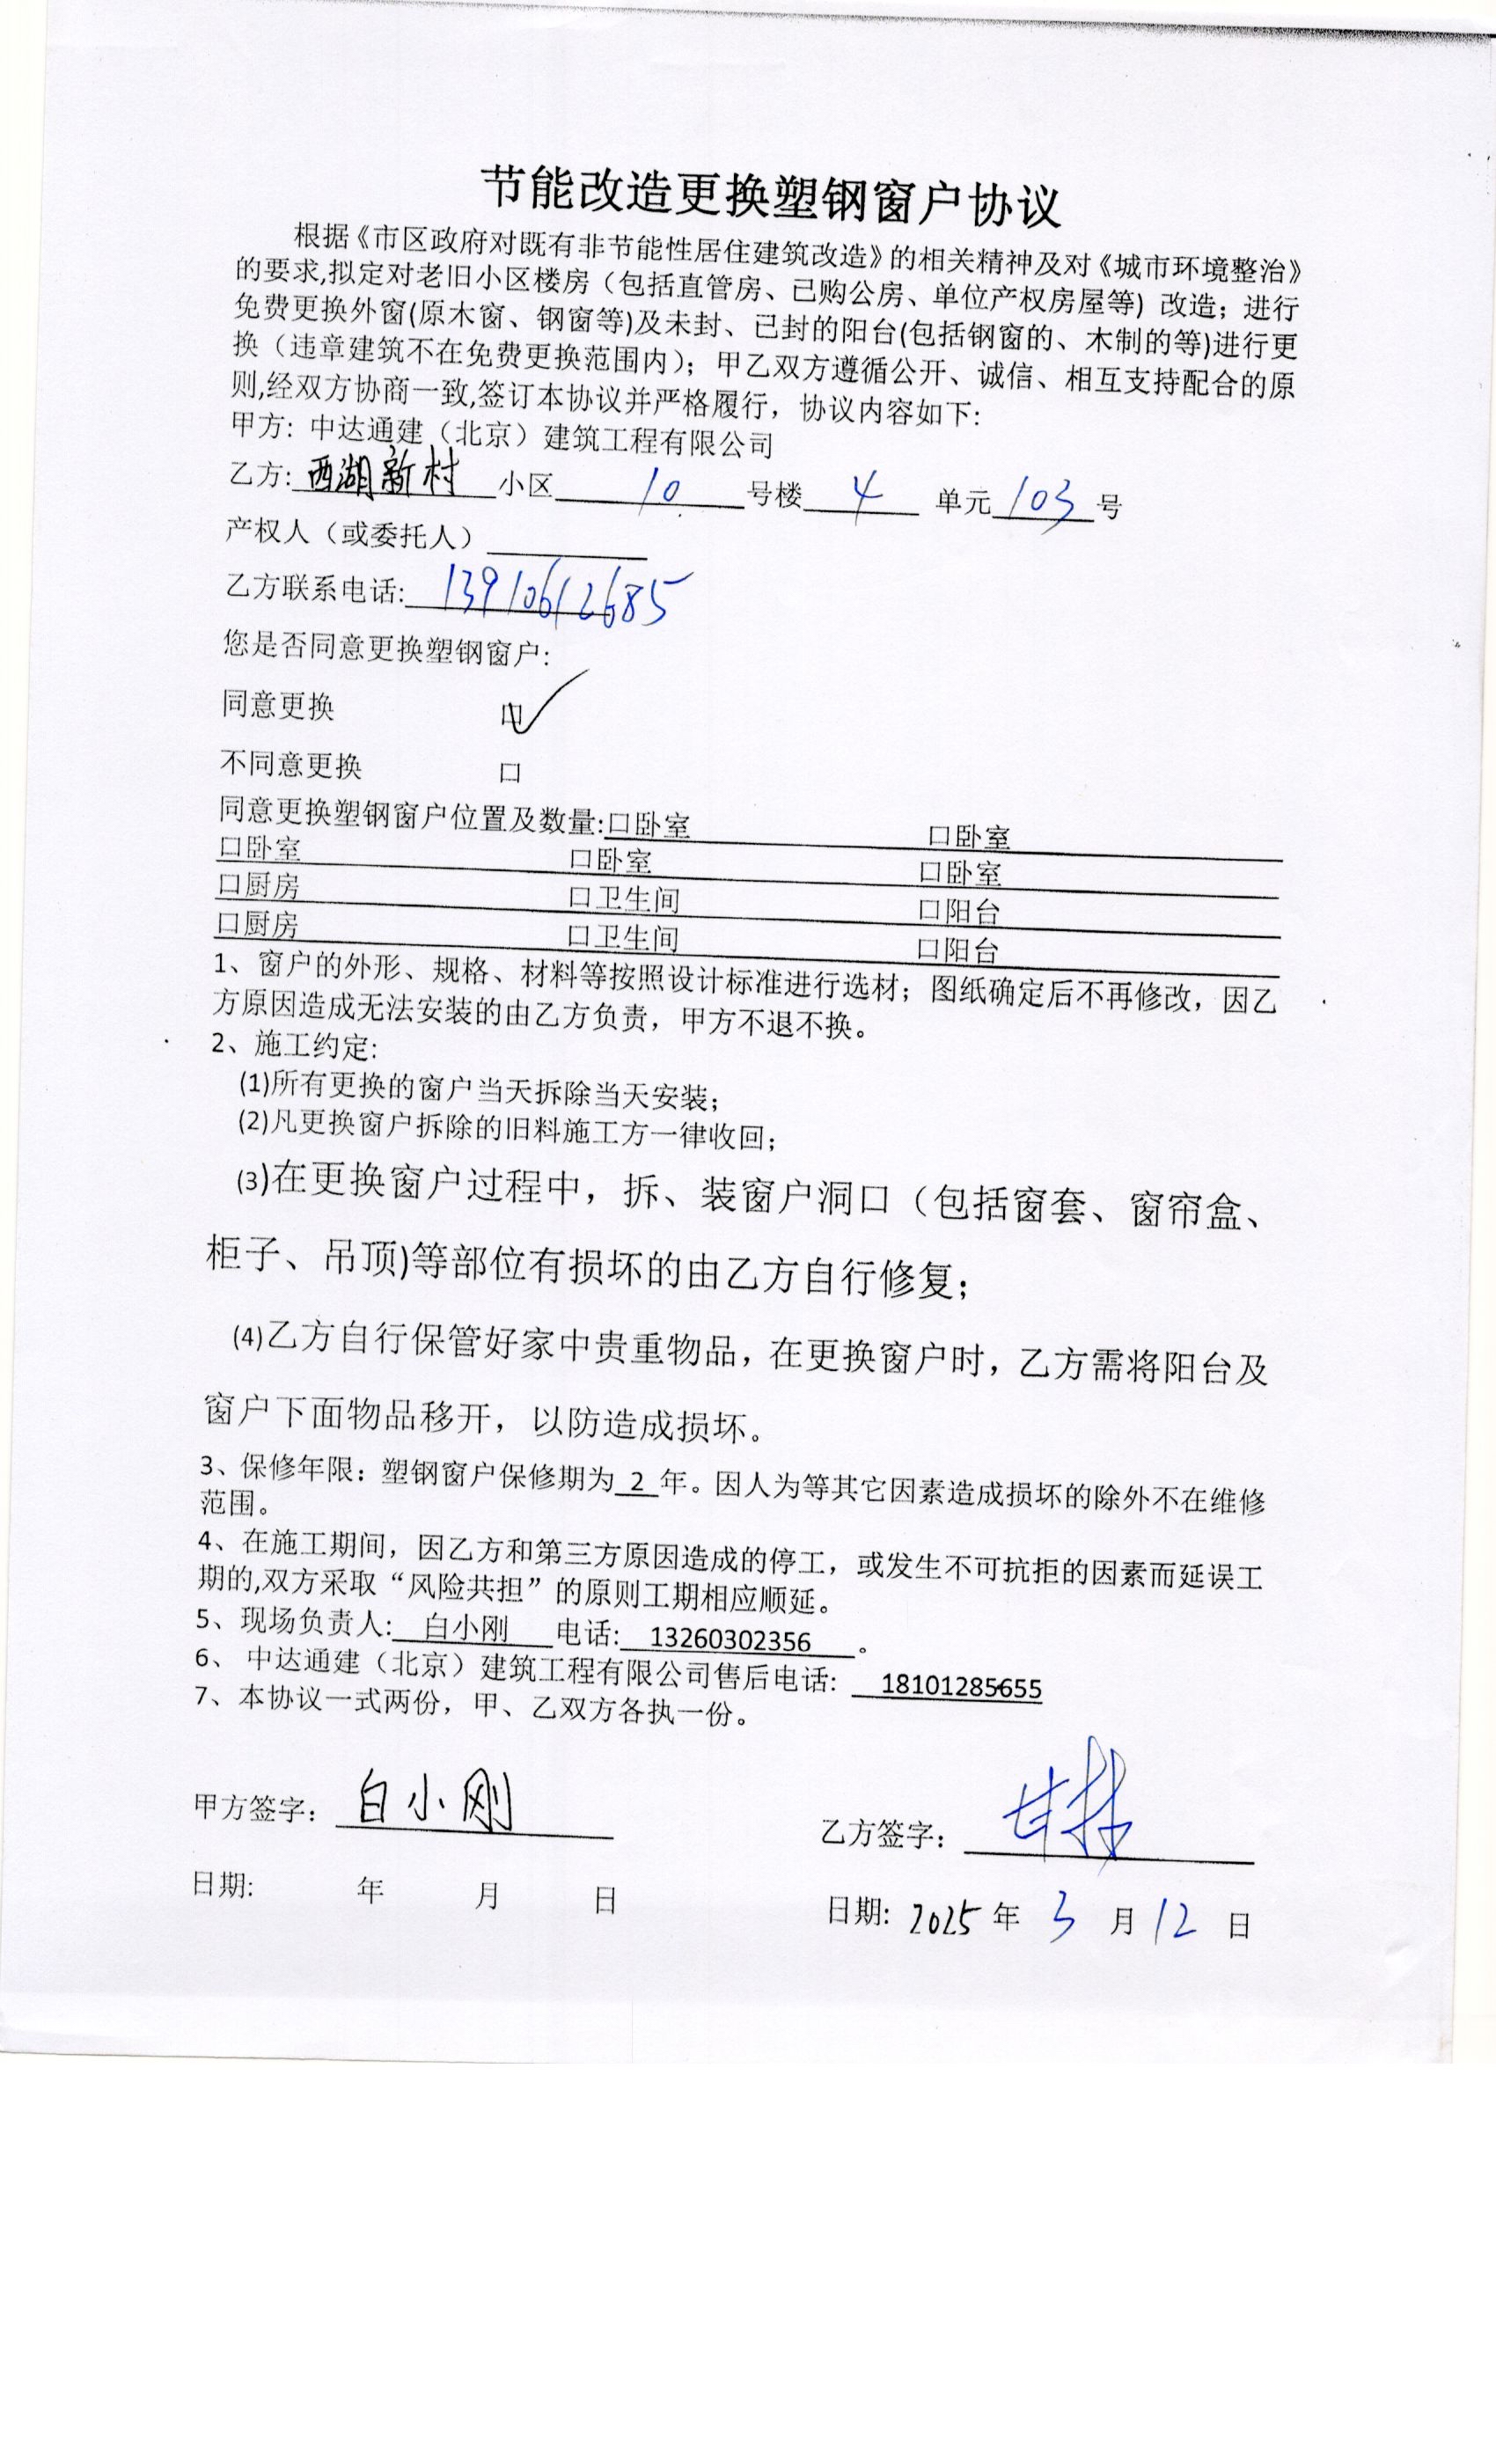 节能改造更换塑钢窗户协议
根据《市区政府对既有非节能性居住建筑改造》的相关精神及对《城市环境整治》
的要求,拟定对老旧小区楼房（包括直管房、已购公房、单位产权房屋等) 改造；进行
免费更换外窗(原木窗、钢窗等)及未封、已封的阳台(包括钢窗的、木制的等)进行更
换（违章建筑不在免费更换范围内）；甲乙双方遵循公开、诚信、相互支持配合的原
则,经双方协商一致,签订本协议并严格履行，协议内容如下:
甲方: 中达通建（北京）建筑工程有限公司
乙方: 西湖新村 小区 10 号楼 4 单元 103 号
产权人（或委托人）
乙方联系电话: 13910612685
您是否同意更换塑钢窗户:
同意更换 口✓
不同意更换 口
同意更换塑钢窗户位置及数量:口卧室 口卧室
口卧室 口卧室 口卧室
口厨房 口卫生间 口阳台
口厨房 口卫生间 口阳台
1、窗户的外形、规格、材料等按照设计标准进行选材；图纸确定后不再修改，因乙
方原因造成无法安装的由乙方负责，甲方不退不换。
2、施工约定:
(1)所有更换的窗户当天拆除当天安装；
(2)凡更换窗户拆除的旧料施工方一律收回；
(3)在更换窗户过程中，拆、装窗户洞口（包括窗套、窗帘盒、
柜子、吊顶)等部位有损坏的由乙方自行修复；
(4)乙方自行保管好家中贵重物品，在更换窗户时，乙方需将阳台及
窗户下面物品移开，以防造成损坏。
3、保修年限：塑钢窗户保修期为 2 年。因人为等其它因素造成损坏的除外不在维修
范围。
4、在施工期间，因乙方和第三方原因造成的停工，或发生不可抗拒的因素而延误工
期的,双方采取“风险共担”的原则工期相应顺延。
5、现场负责人: 白小刚 电话: 13260302356 。
6、 中达通建（北京）建筑工程有限公司售后电话: 18101285655
7、本协议一式两份，甲、乙双方各执一份。
甲方签字： 白小刚 乙方签字：
日期: 年 月 日 日期: 2025 年 3 月 12 日